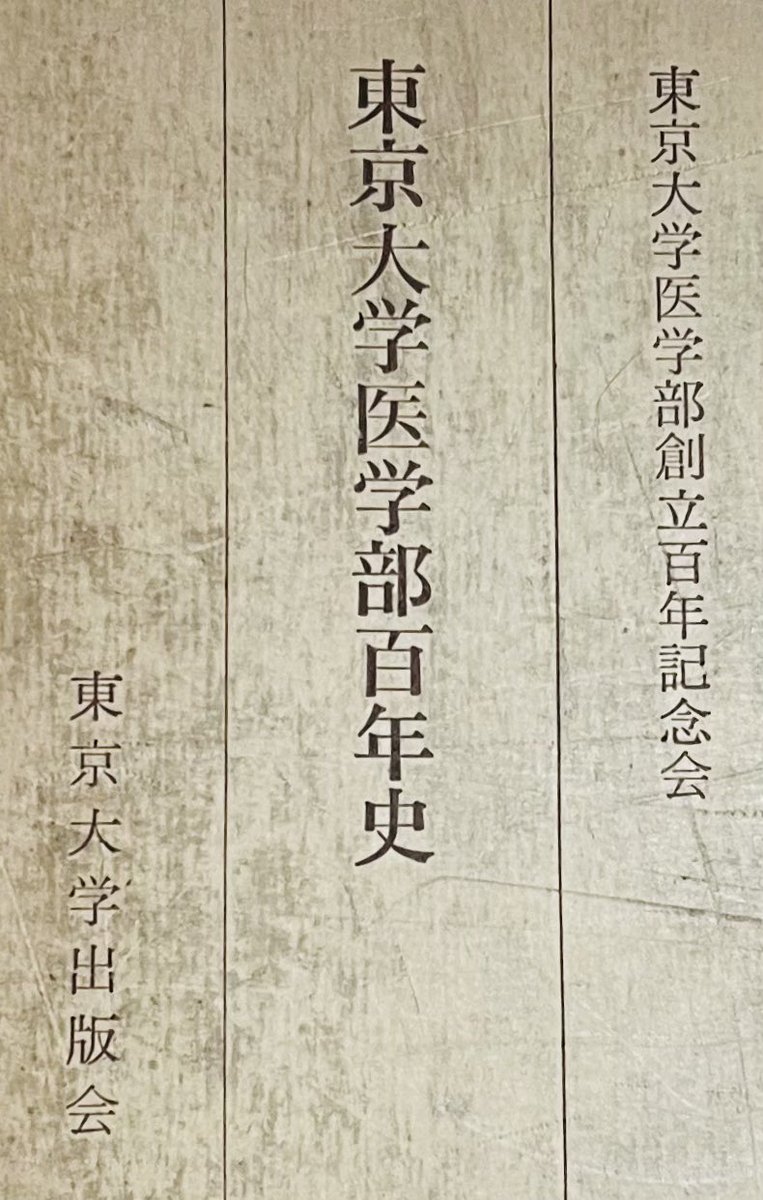 東京大学医学部創立百年記念会
東京大学医学部百年史
東京大学出版会